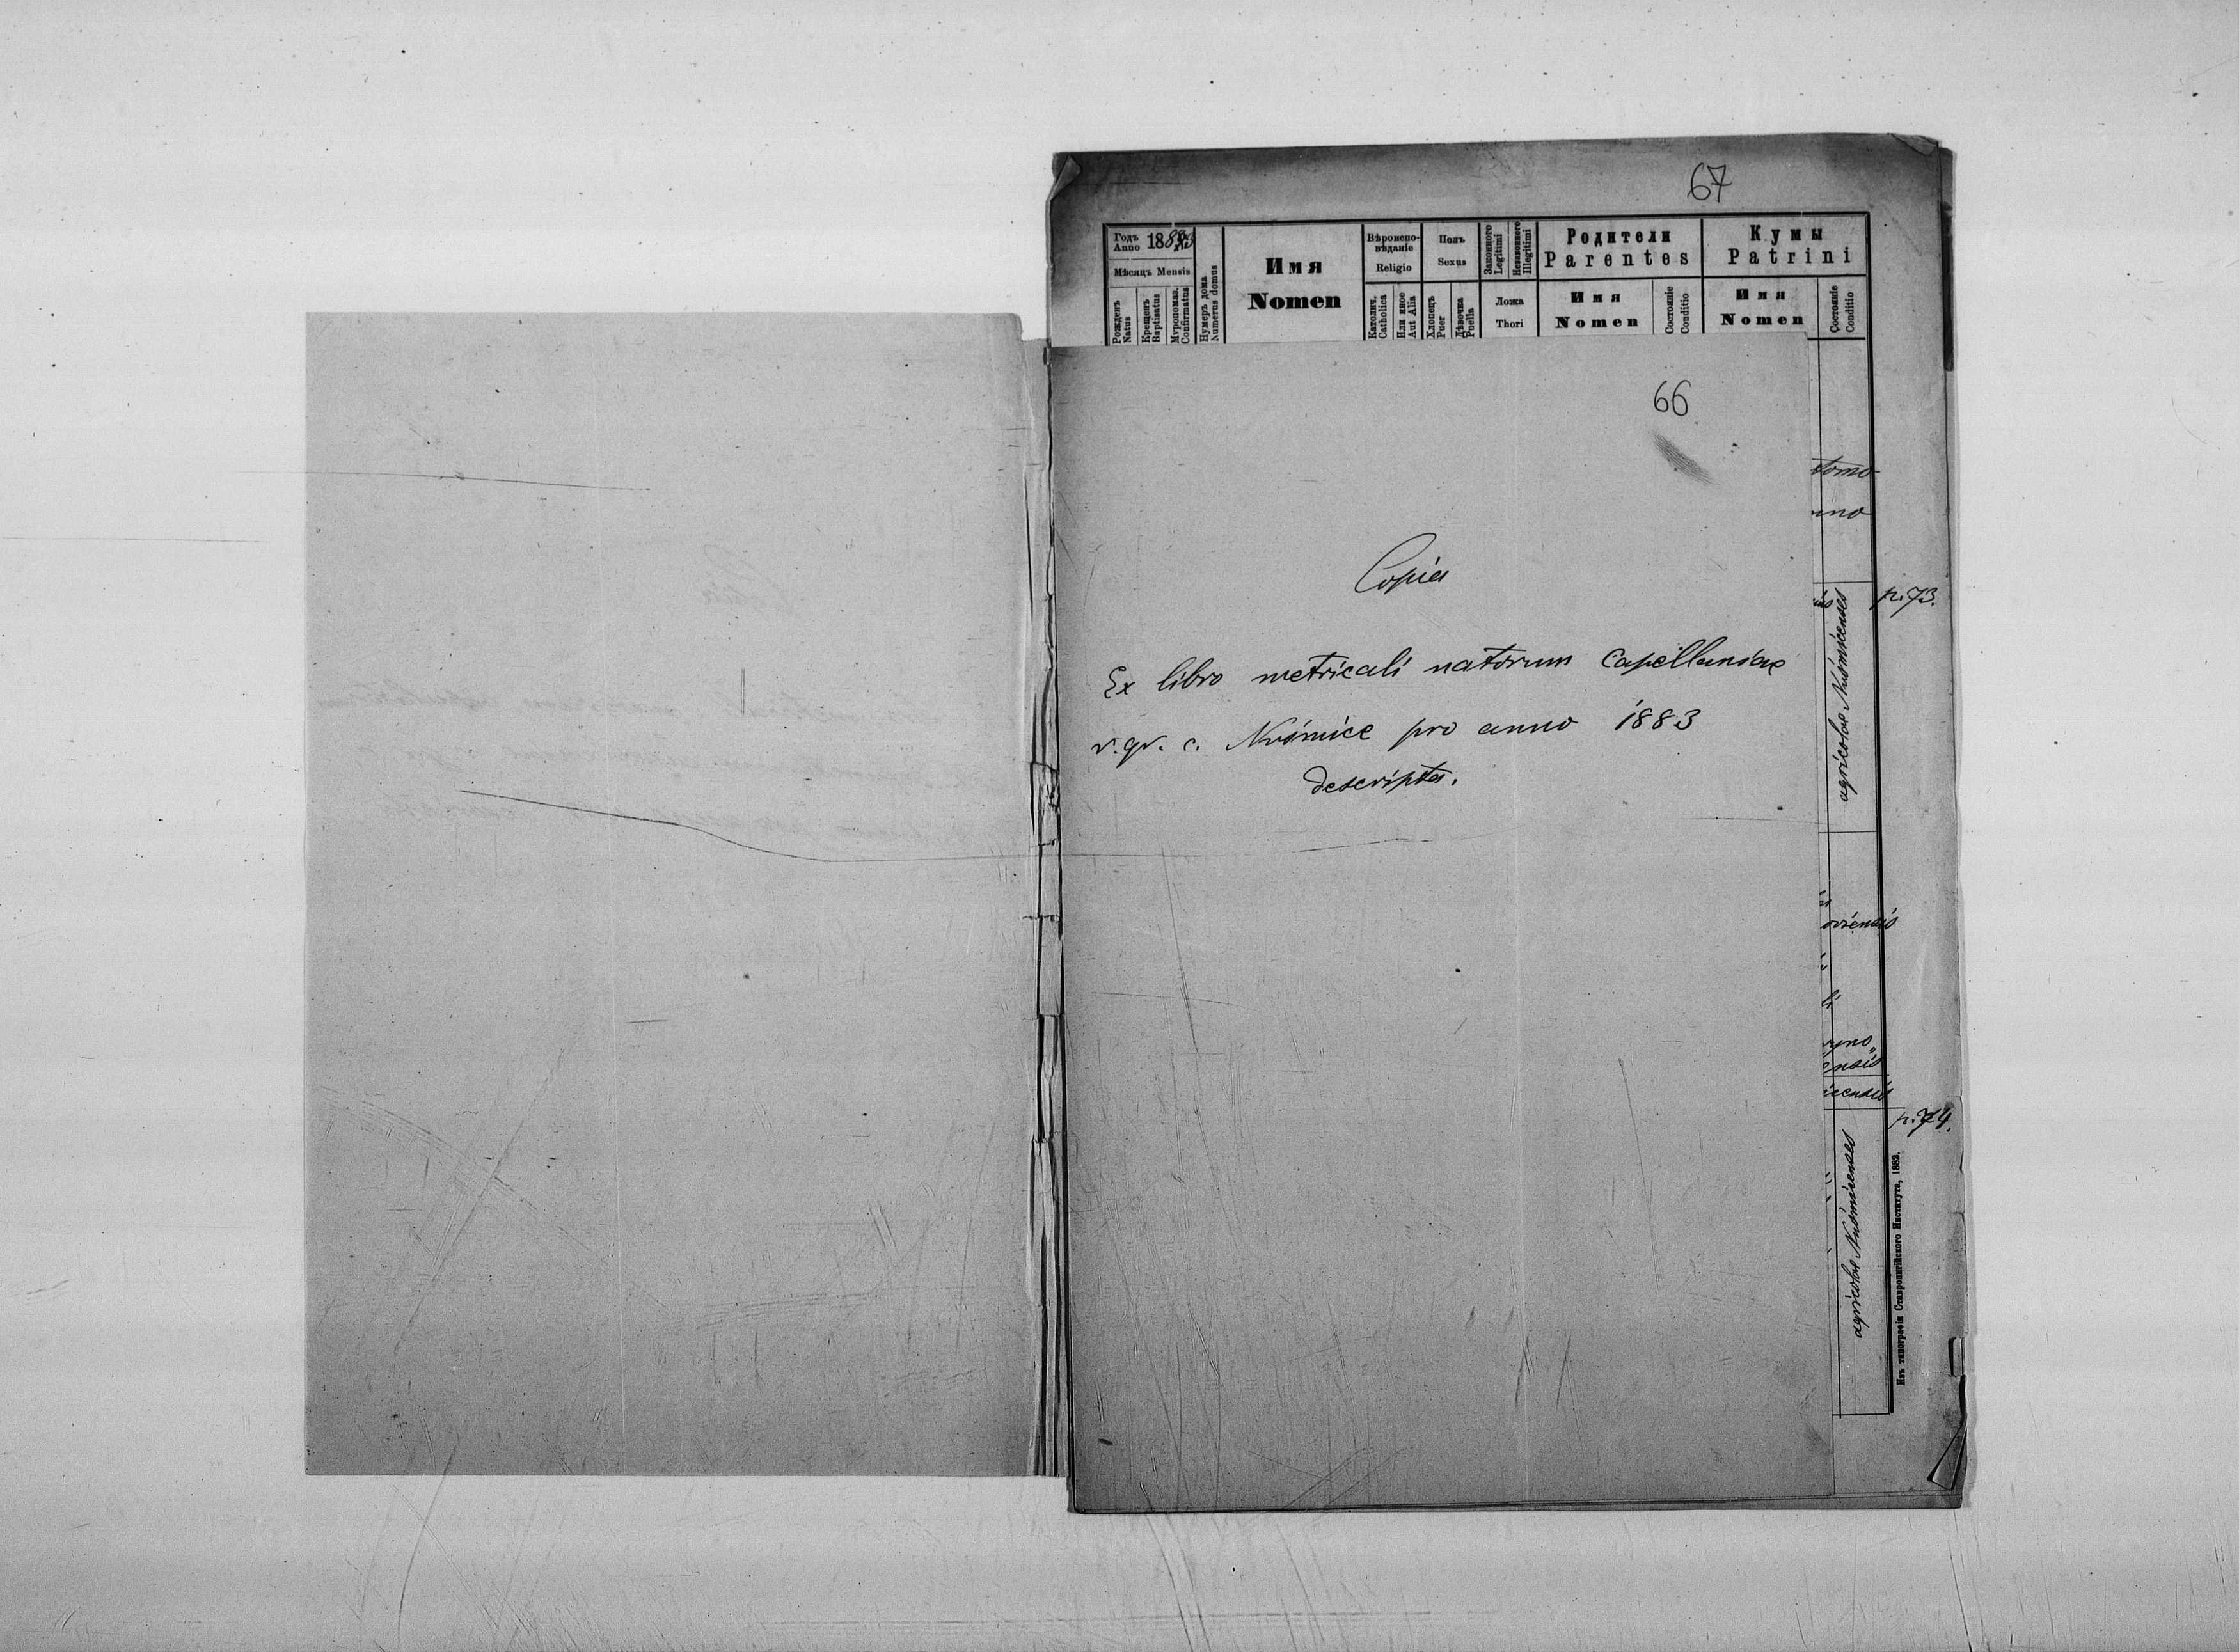 67
Годъ Anno 1883
Мѣсяцъ Mensis
Рожденъ Natus
Крещенъ Baptisatus
Мѵропомаз. Confirmatus
Нумеръ дома Numerus domus
Имя
Nomen
Вѣроиспо-
вѣданіе
Religio
Католич. Catholica
Или иное Aut Alia
Полъ
Sexus
Хлопецъ Puer
Дѣвочка Puella
Законного Legitimi
Незаконного Illegitimi
Ложа
Thori
Родители
Parentes
Имя
Nomen
Состояніе Conditio
Кумы
Patrini
Имя
Nomen
Состояніе Conditio
66
Copia
Ex libro metricali natorum Capellaniae
r. gr. c. Kuśmice pro anno 1883
descripta.
p. 73.
agricolae Kuśmicenses
p. 74.
agricolae Kuśmicenses
Изъ типографіи Ставропигійского Института, 1882.